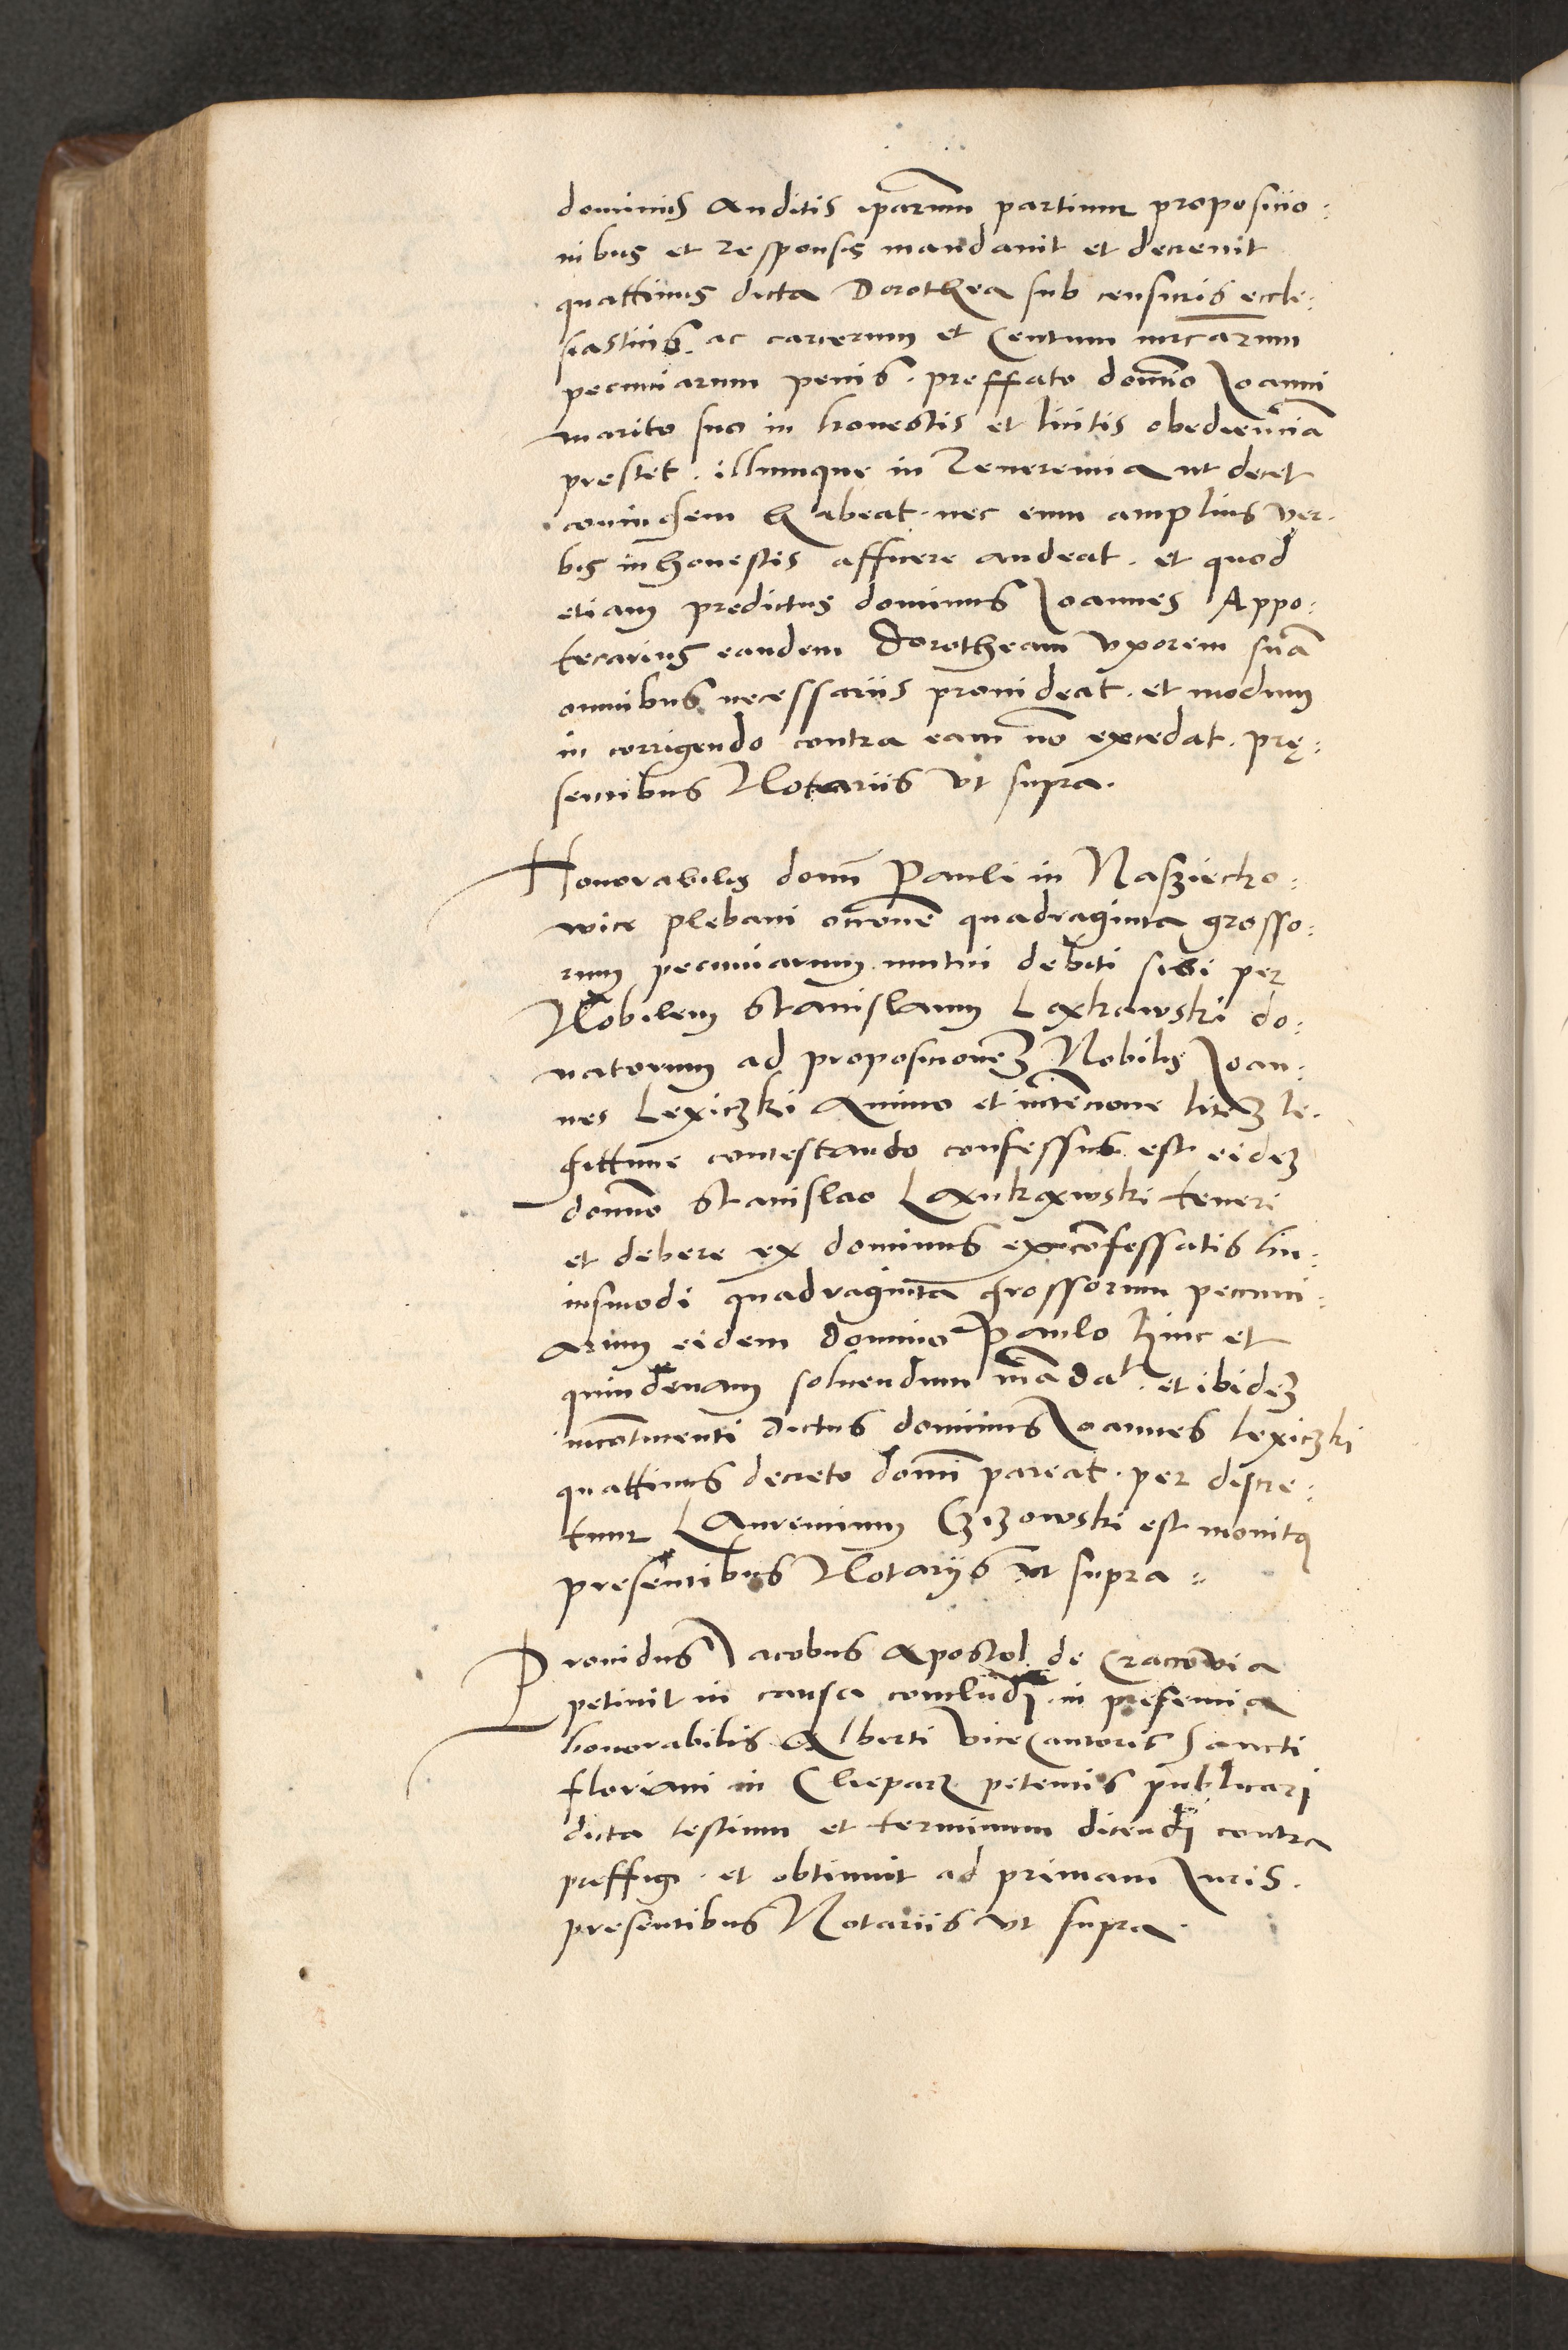 dominus auditis iparum partium proposicio:
nibus et responsis mandavit et decrevit
quattinus dicta Dorothea sub censuris eccle:
siasticis. ac carcerum et Centum mrcarum
pecuniarum penis. preffato domino Joanni
marito suo in honestis et licitis obedienciam
prestet. illumque in reverencia ut decet
coniugem habeat. nec eum amplius ver.
bis inhonestis afficere audeat. et quod
etiam predictus dominus Joannes Appo:
tecarius eandem Dorotheam uxorem suã
omnibus necessariis provideat. et modum
in corrigendo contra eam nõ excedat. prę:
sentibus Notariis ut supra.
Honorabilis domĩ Pauli in Naßiecho:
wice plebani quadraginta grosso:
rum pecuniarum mutui debiti sibi per
Nobilem Stanislaum Laxkowski do:
natorum ad proposicionem Nobilis Joan:
nes Lexiczki animo et intencione litem le.
gittime contestando confessus est eidem
domino Stanislao teneri
et debere ex dominus ex confessatis hu:
iusmodi quadraginta grossorum pecuni:
arum eidem domino Paulo hinc et
quindenam solvendum mãdat. et ibidem
incõtinenti dictus dominus Joannes Lexiczki
quattinus decreto domĩ pareat. per discre:
tum Laurencium Czizowski est monitus
presentibus Notarijs ut supra.:
Providus Jacobus Apostol. de Craccovia
petivit in causa concludi. in presencia
honorabilis Alberti vicecantoris Sancti
floriani in Cleparz petentis publicari
dicta testium et terminum dicendi contra
preffigi. et obtinuit ad primam Juris.
presentibus Notariis ut supra.